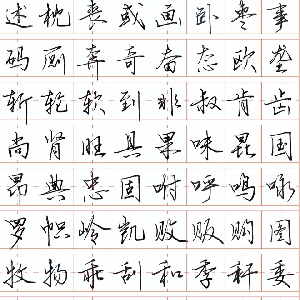 述枕丧或画卧枣事
码厕奔奇奋态欧垄
斩轮软到非叔肯齿
尚肾旺具果味昆国
昂典忠固咐呼鸣咏
罗帜岭凯败贩购图
牧物乖刮和季秆委